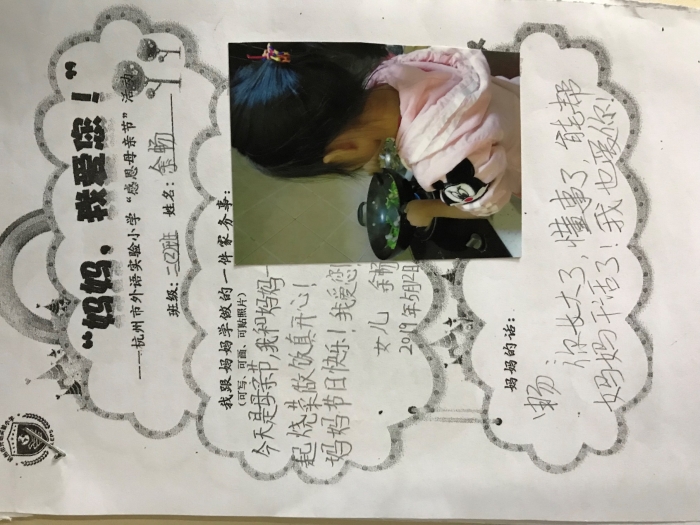 “妈妈，我爱您！”
——杭州市外语实验小学“感恩母亲节”活动
班级：二(2)班 姓名：余畅
我跟妈妈学做的一件家务事：
（可写、可画、可贴照片）
今天是母亲节，我和妈妈一
起烧菜做饭真开心！
妈妈节日快乐！我爱您！
女儿 余畅
2019年5月12日
妈妈的话：
畅 你长大了，懂事了，能帮
妈妈干活了！我也爱你！